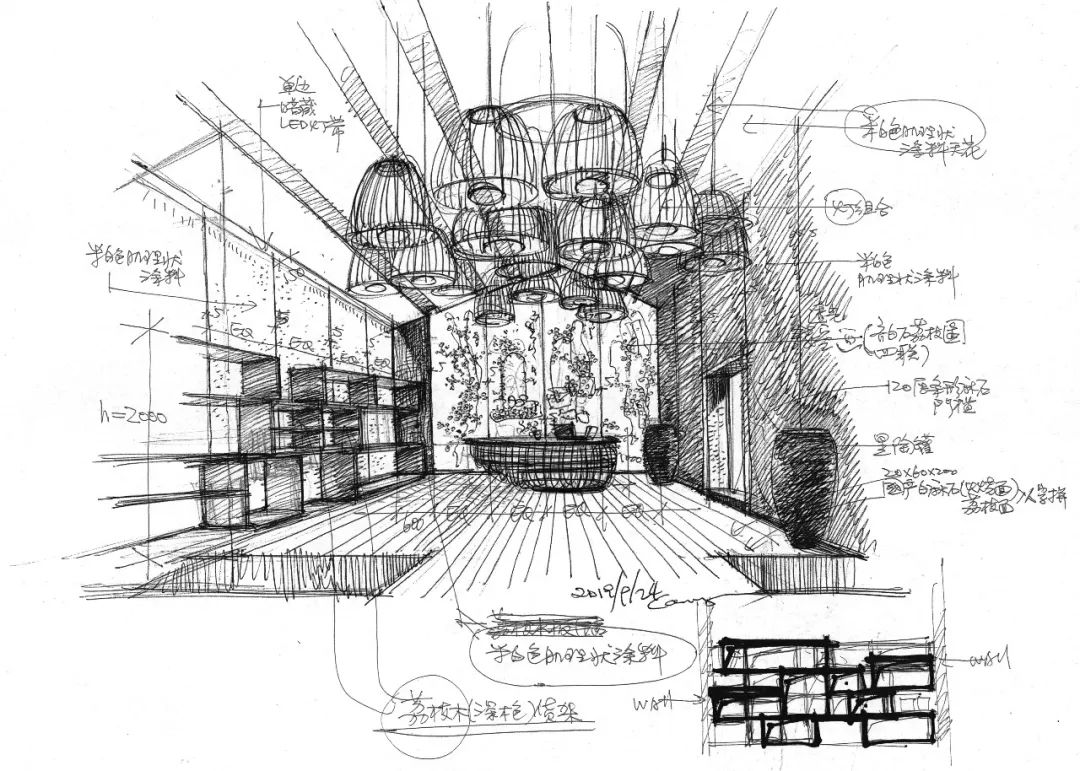 单边
暗藏
LED灯带
米白色肌理状
涂料天花
灯组合
米白色肌理状
涂料
米白色
肌理状涂料
EQ
EQ
EQ
5
5
5
5
50
h=2000
(齐白石荔枝图
四联)
120厚条形冰石
门槛
黑陶罐
20×60×200
国产白冰石(火烧面)人字拼
荔枝面
600
EQ
EQ
EQ
EQ
2019/9/24
米白色肌理状涂料
荔枝木(深棕色)货架
WALL
WALL